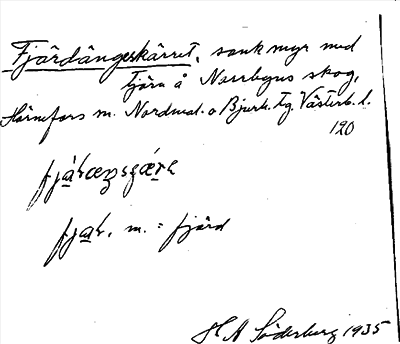 Fjärdängeskärret, sank myr med
tjärn å Norrbyns skog,
Hörnefors sn. Nordmal. o Bjurh. tg. Västerb. l.
120
fjạ́ɫæŋsgǽ̣rɐ
fjạɫ, m. = fjärd
H A Söderberg 1935